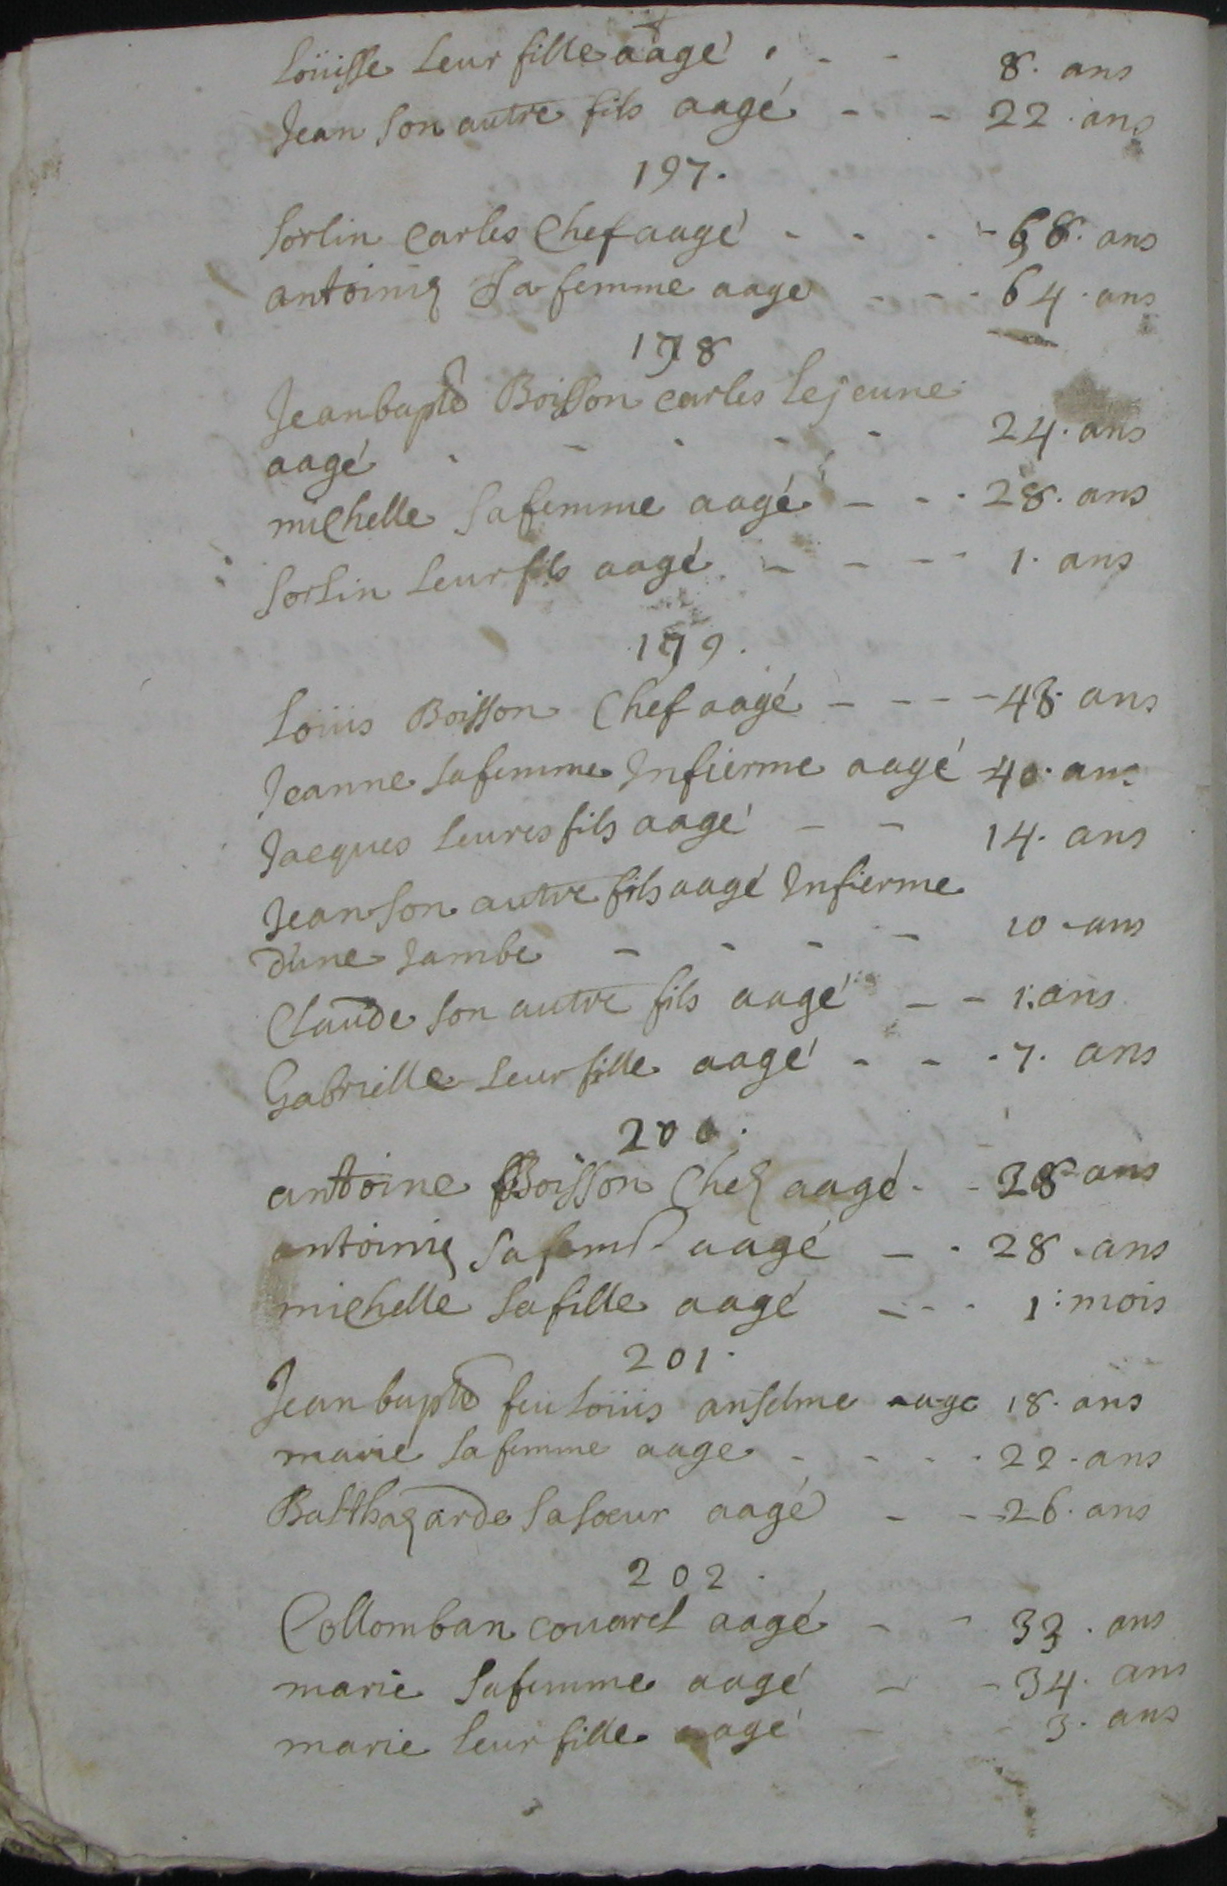 Loüisse Leur fille aagé 8. ans
Jean son autre fils aagé 22. ans
197.
Sorlin Carles Chef aagé 68. ans
antoinie Sa femme aage 64. ans
198
Jeanbapte Boisson carles Lejeune
aagé 24. ans
michelle Sa femme aagé 28. ans
Sorlin Leur fils aagé 1. ans
199.
Loüis Boisson Chef aagé 48. ans
Jeanne Sa femme Infierme aagé 40. ans
Jacques Leures fils aagé 14. ans
Jean Son autre fils aagé Infierme
dune Jambe 10 ans
Claude Son autre fils aagé 1. ans
Gabrielle Leur fille aagé 7. ans
200.
antoine Boisson Chef aagé 28 ans
antoinie Sa feme aagé 28. ans
michelle Sa fille aagé 1. mois
201.
Jean bapte feu Loüis anselme aage 18. ans
marie Sa femme aage 22. ans
Balthazarde Sa soeur aagé 26. ans
202.
Collomban couarel aagé 33. ans
marie Sa femme aagé 34. ans
marie Leur fille aagé 3. ans